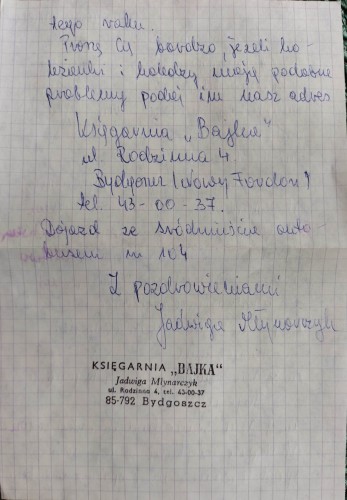 tego roku.
Proszę Cię bardzo, jeżeli ko-
leżanki i koledzy mają podobne
problemy podaj im nasz adres
Księgarnia „Bajka"
ul. Rodzinna 4.
Bydgoszcz (Nowy Fordon)
tel. 43-00-37.
Dojazd ze śródmieścia auto-
busem nr 104
Z pozdrowieniami
Jadwiga Młynarczyk
KSIĘGARNIA „BAJKA"
Jadwiga Młynarczyk
ul. Rodzinna 4, tel. 43-00-37
85-792 Bydgoszcz